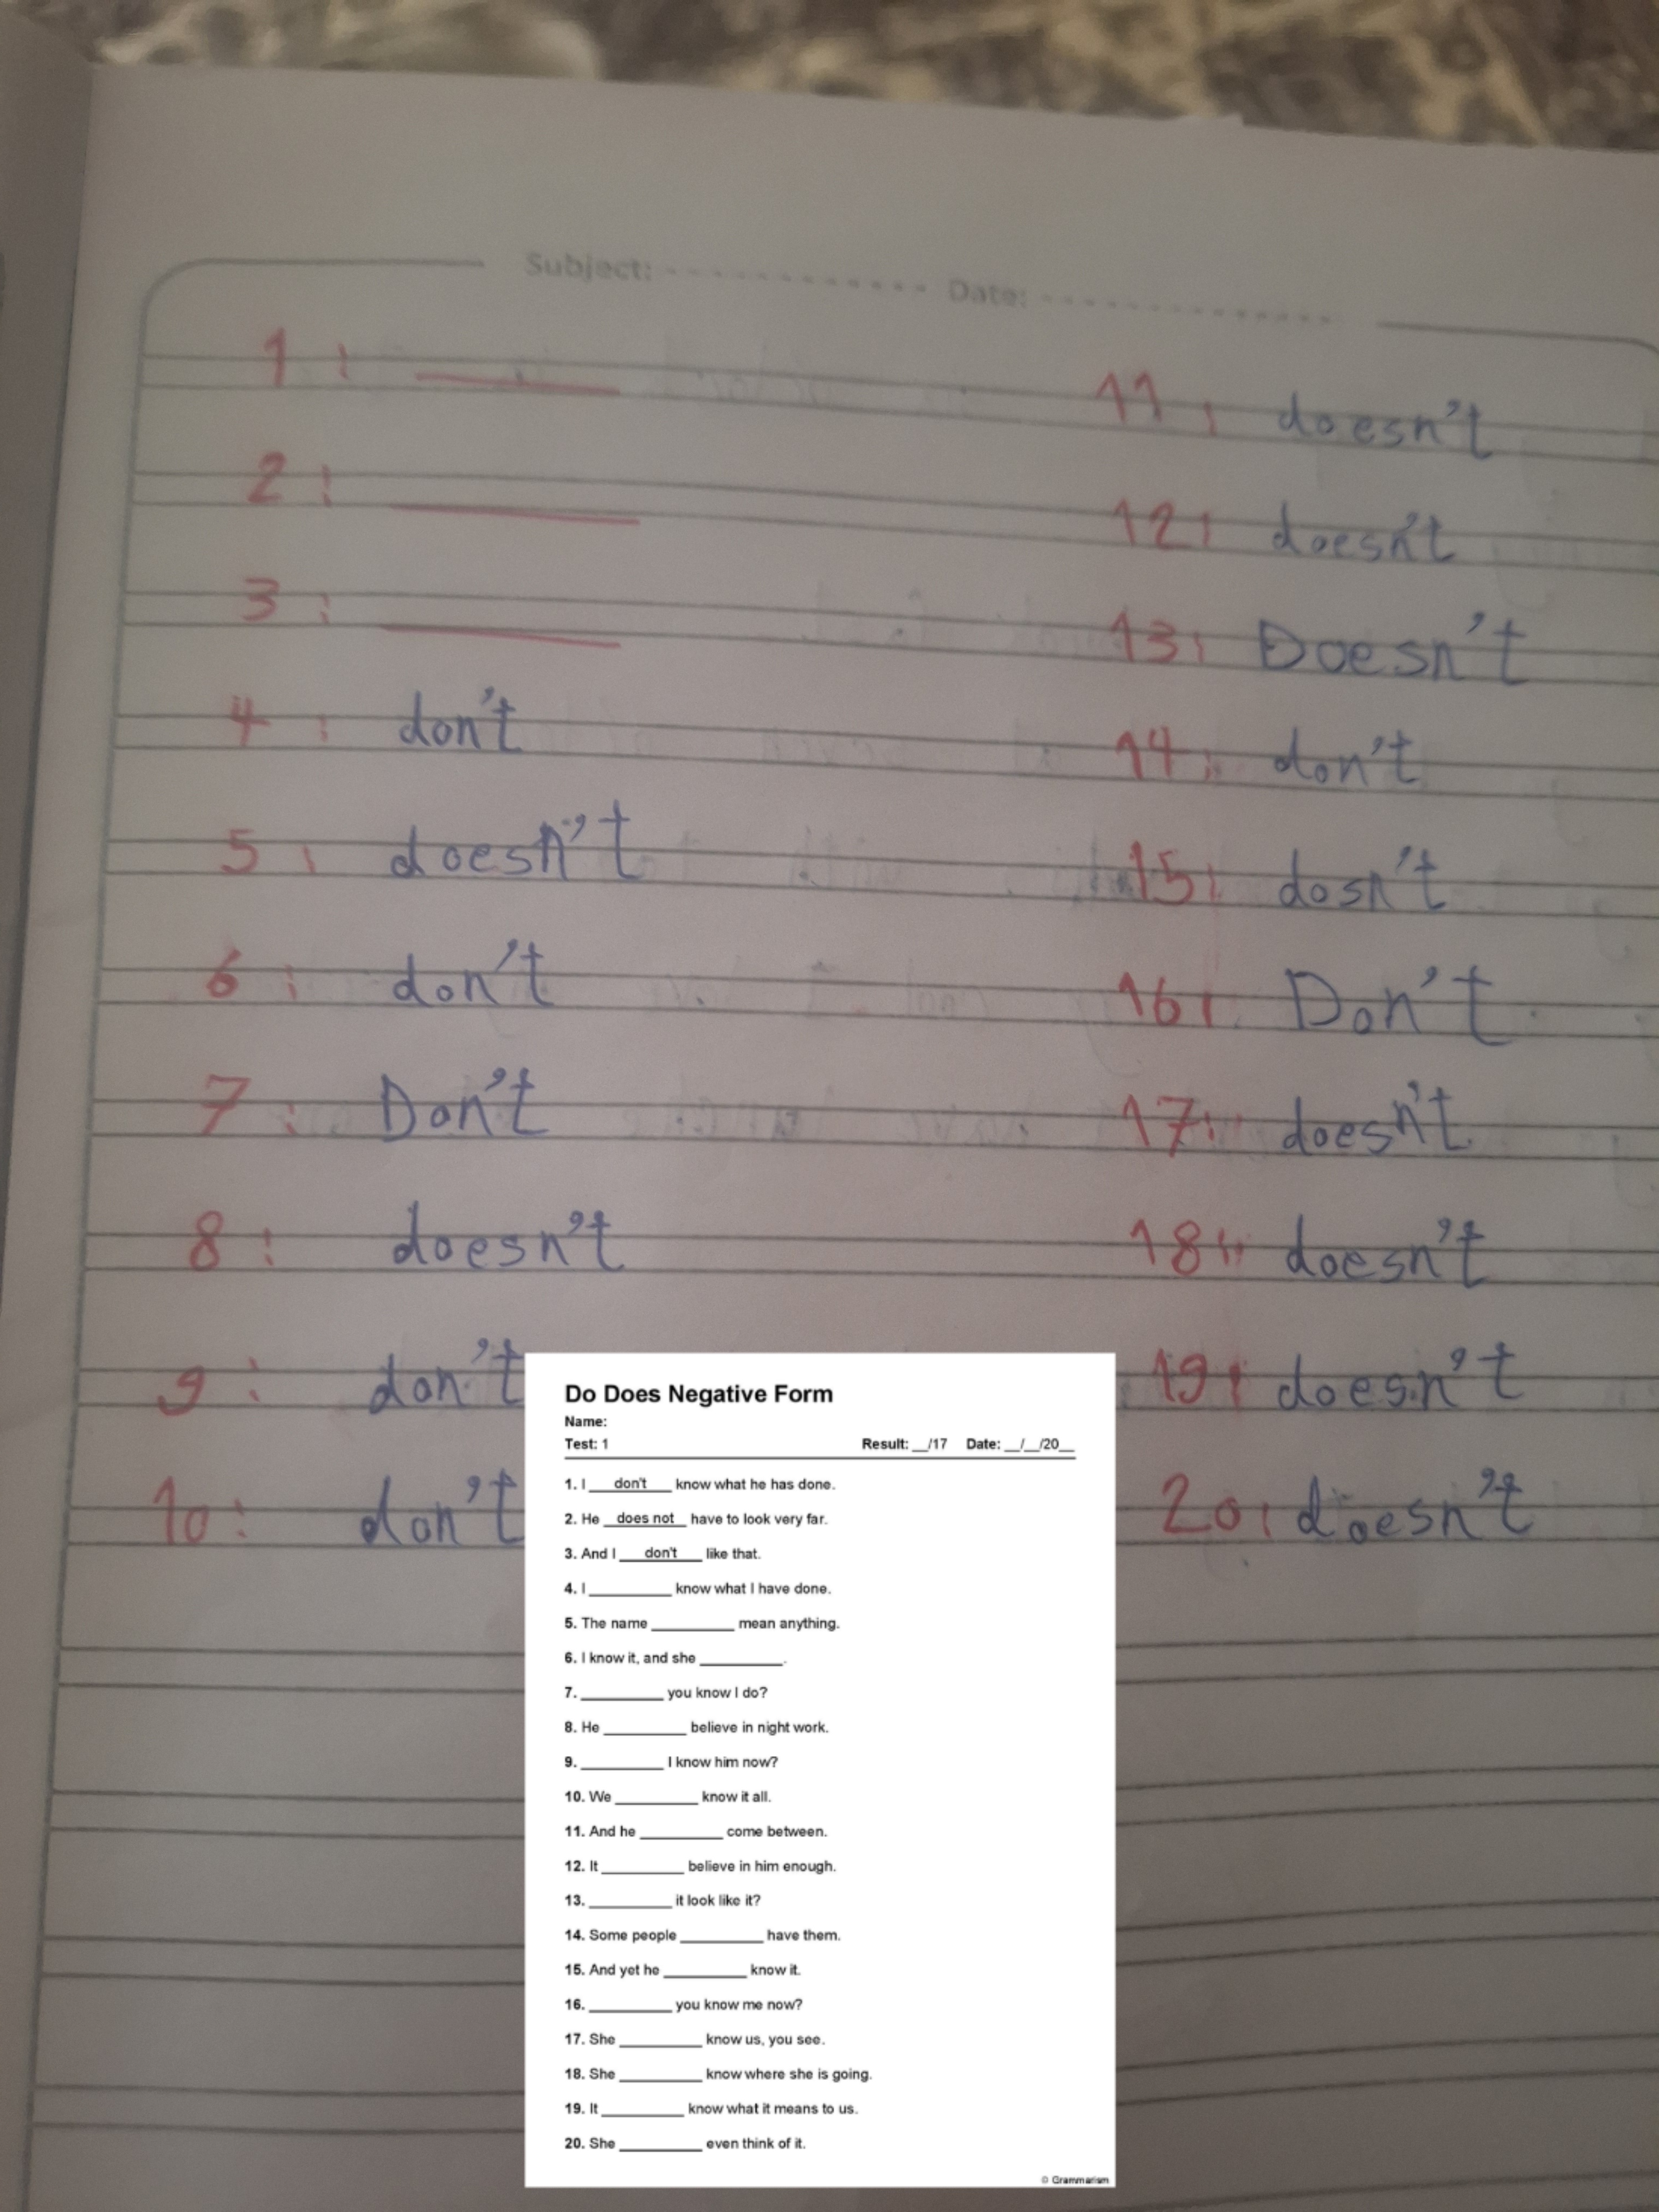 Subject: Date:
1:
2:
3:
4: don't
5: doesn't
6: don't
7: Don't
8: doesn't
9: don't
10: don't
11: doesn't
12: doesn't
13: Doesn't
14: don't
15: dosn't
16: Don't
17: doesn't
18: doesn't
19: doesn't
20: doesn't
Do Does Negative Form
Name:
Test: 1 Result: __/17 Date: __/__/20__
1. I don't know what he has done.
2. He does not have to look very far.
3. And I don't like that.
4. I __________ know what I have done.
5. The name __________ mean anything.
6. I know it, and she __________.
7. __________ you know I do?
8. He __________ believe in night work.
9. __________ I know him now?
10. We __________ know it all.
11. And he __________ come between.
12. It __________ believe in him enough.
13. __________ it look like it?
14. Some people __________ have them.
15. And yet he __________ know it.
16. __________ you know me now?
17. She __________ know us, you see.
18. She __________ know where she is going.
19. It __________ know what it means to us.
20. She __________ even think of it.
© Grammarism